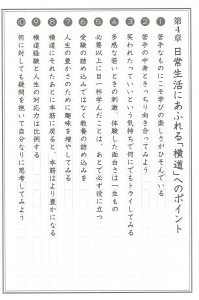 第4章 日常生活にあふれる「横道」へのポイント
① 苦手なものにこそ学びの楽しさがひそんでいる
② 苦手の中身ときっちり向き合ってみよう
③ 笑われたっていいという気持ちで何にでもトライしてみる
④ 多感な若いときの刺激、体験した面白さは一生もの
⑤ 必要以上に目一杯学んだことは、あとで必ず役に立つ
⑥ 受験の詰め込みではなく教養の詰め込みを
⑦ 人生の豊かさのために趣味を増やしてみる
⑧ 横道にそれたあとに本筋に戻ると、本筋はより豊かになる
⑨ 横道経験と人生の対応力は比例する
⑩ 何に対しても疑問を抱いて自分なりに思考してみよう